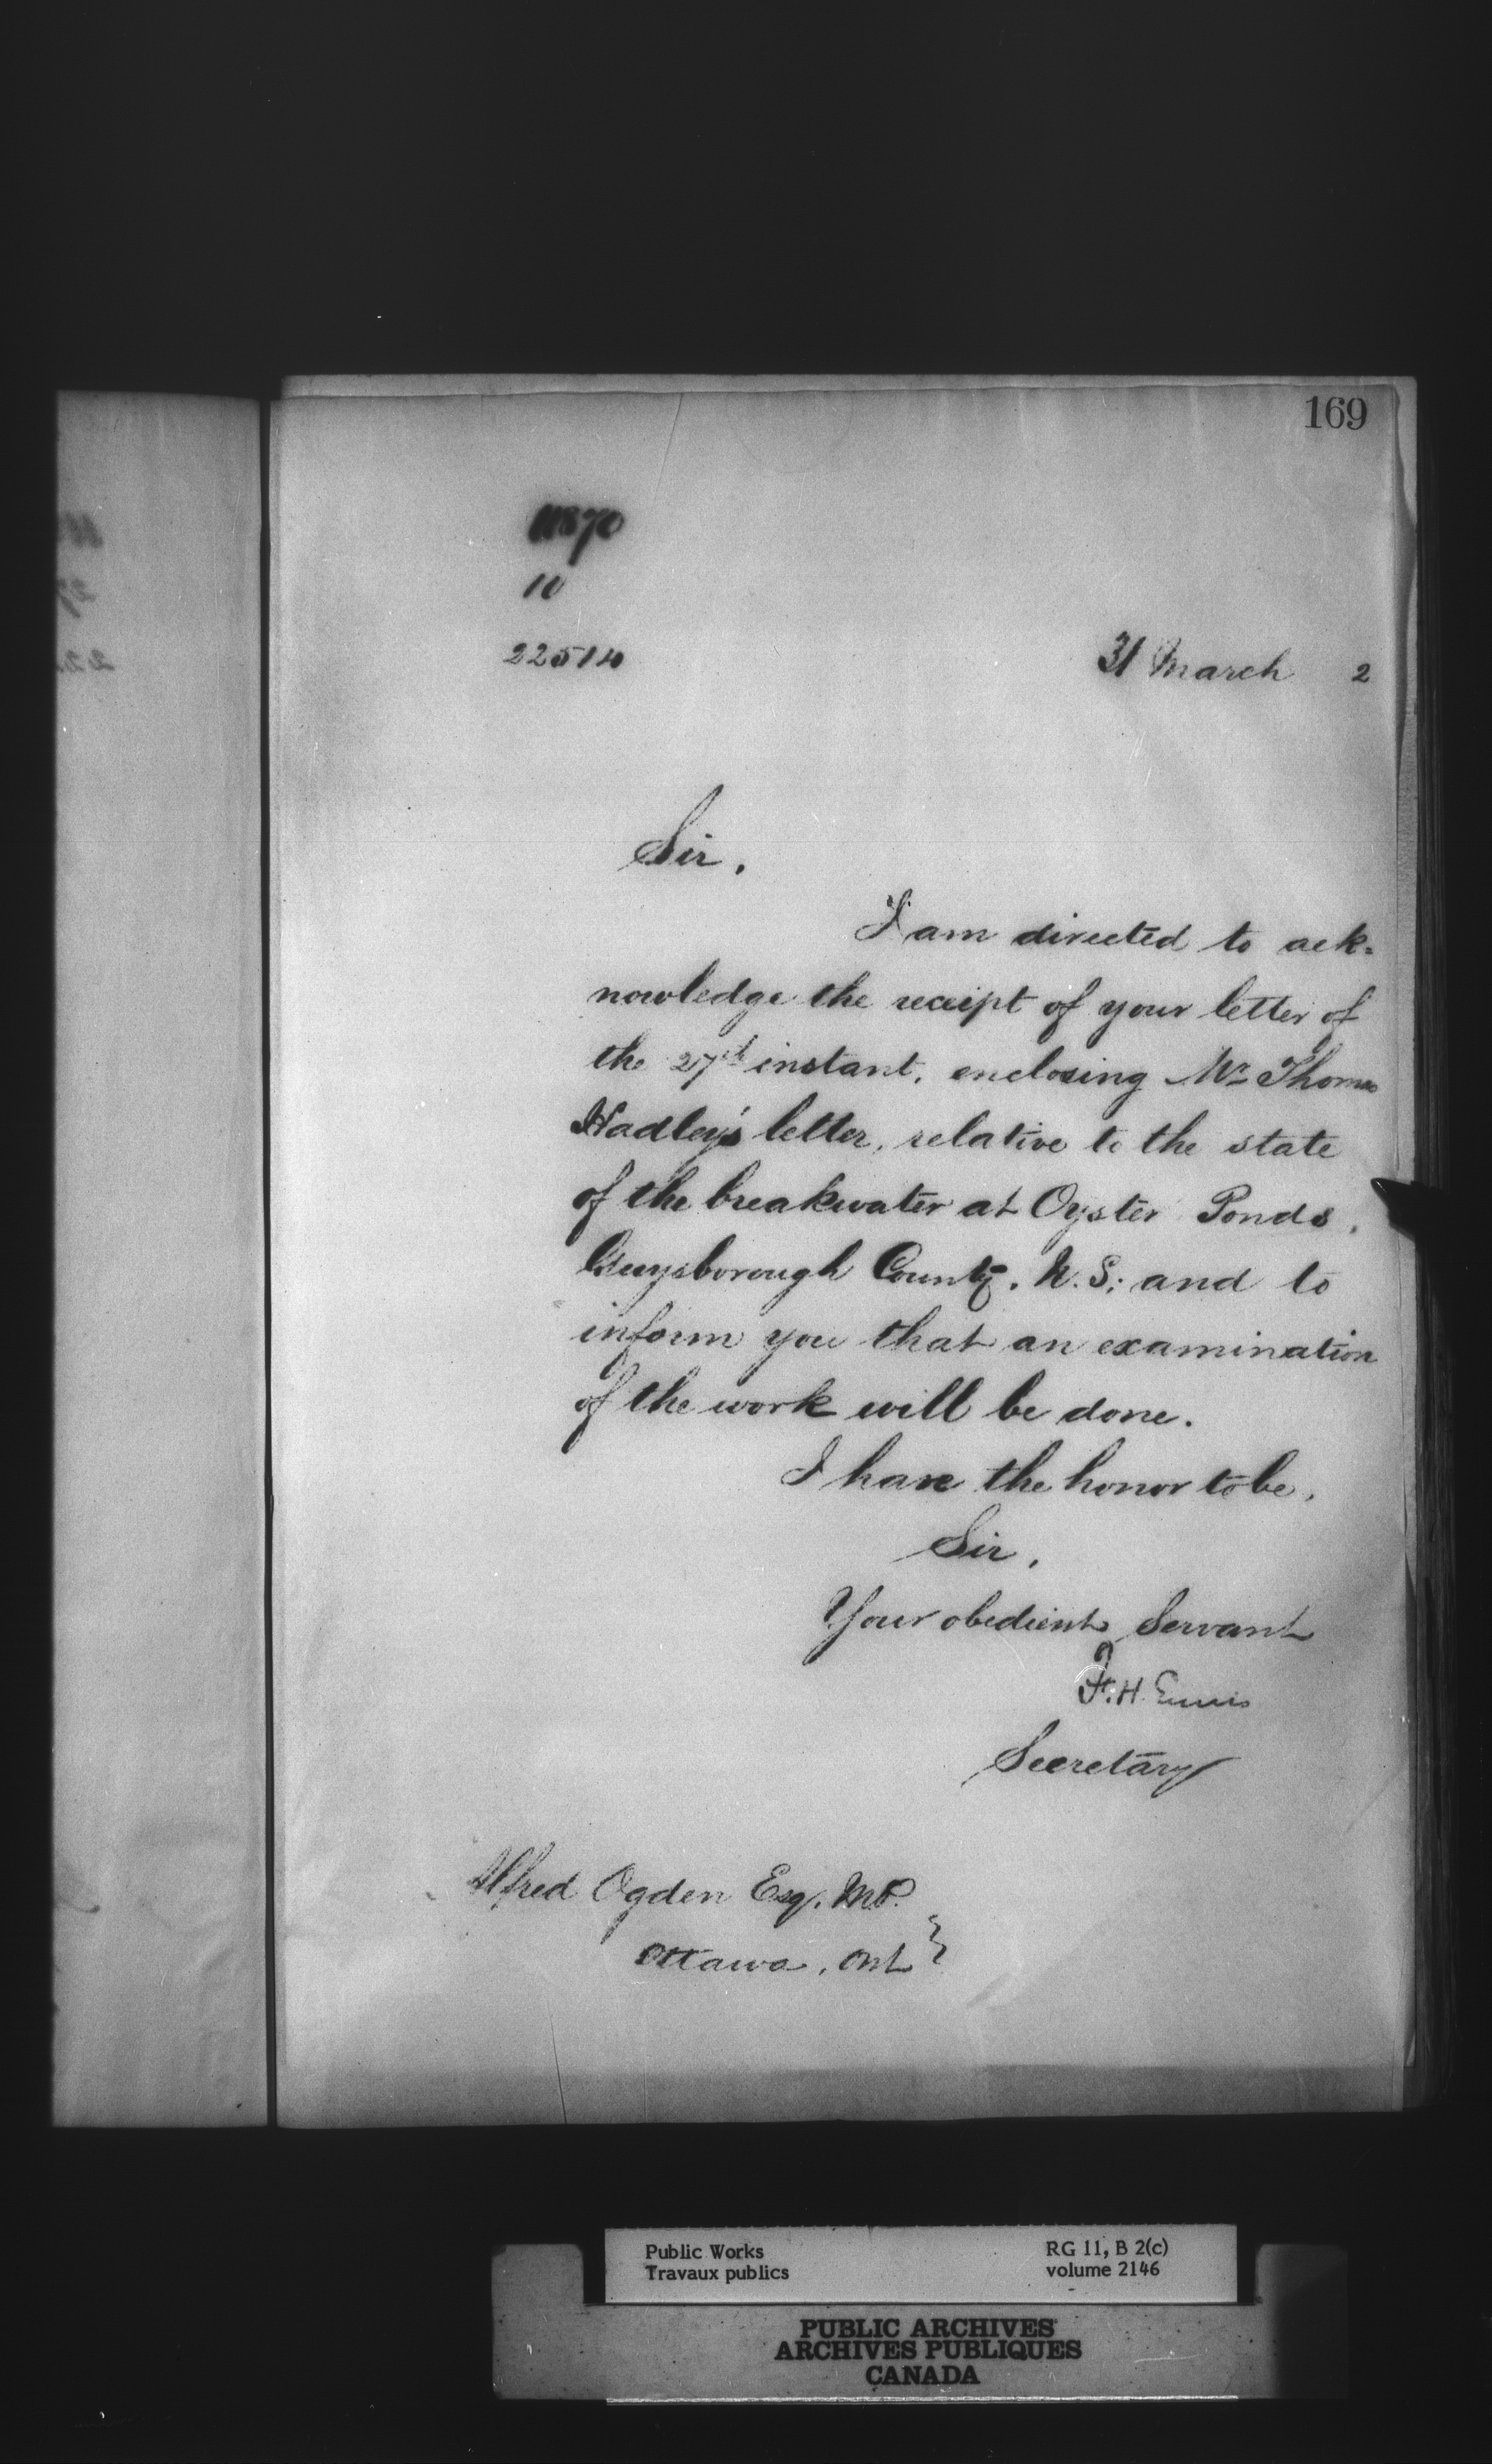 169
11870
10
22514
31 March 2
Sir,
I am directed to ack=
nowledge the receipt of your letter of
the 27th instant, enclosing Mr Thomas
Hadley's letter, relative to the state
of the breakwater at Oyster Ponds,
Guysborough County, N.S; and to
inform you that an examination
of the work will be done.
I have the honor to be,
Sir,
Your obedient Servant
F. H. Ennis
Secretary
Alfred Ogden Esq. M.P.
Ottawa, Ont }
Public Works RG 11, B 2(c)
Travaux publics volume 2146
PUBLIC ARCHIVES
ARCHIVES PUBLIQUES
CANADA